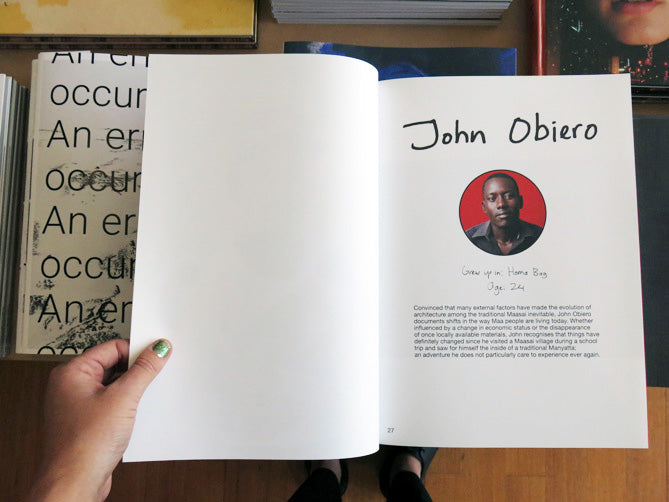 An err
occur
An err
occur
An er
occur
An er
John Obiero
Grew up in: Homa Bay
Age: 24
Convinced that many external factors have made the evolution of
architecture among the traditional Maasai inevitable, John Obiero
documents shifts in the way Maa people are living today. Whether
influenced by a change in economic status or the disappearance
of once locally available materials, John recognises that things have
definitely changed since he visited a Maasai village during a school
trip and saw for himself the inside of a traditional Manyatta;
an adventure he does not particularly care to experience ever again.
27